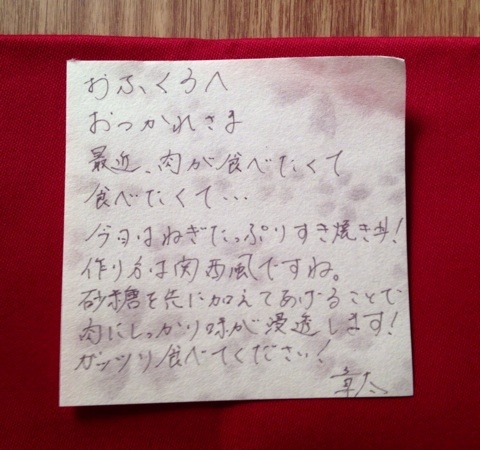 おふくろへ
おつかれさま
最近、肉が食べたくて
食べたくて…
今日はねぎたっぷりすき焼き丼!
作り方は関西風ですね。
砂糖を先に加えてあげることで
肉にしっかり味が浸透します!
ガッツリ食べてください!
章太